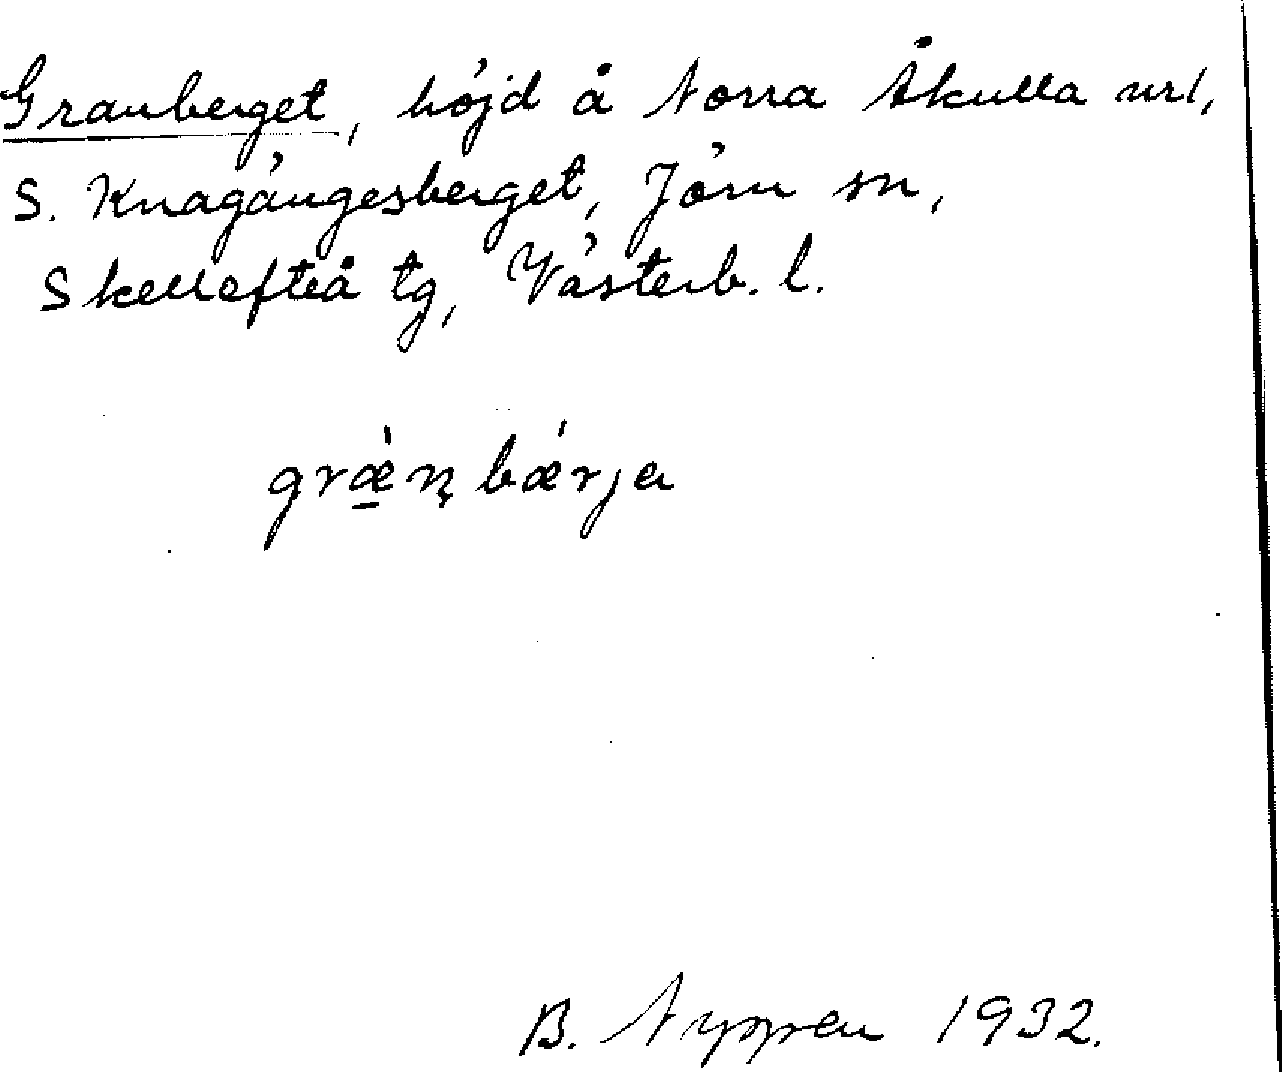 Granberget, höjd å Norra Åkulla url,
S. Knagängesberget, Jörn sn,
Skellefteå tg, Västerb. l.
græ̀n bǽrja
B. Nyppen 1932.